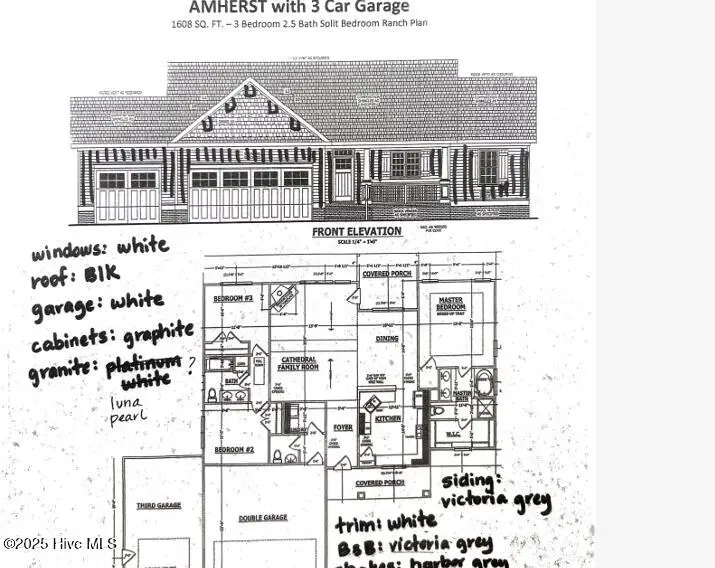 AMHERST with 3 Car Garage
1608 SQ. FT. – 3 Bedroom 2.5 Bath Split Bedroom Ranch Plan
FRONT ELEVATION
SCALE 1/4" = 1'0"
windows: white
roof: Blk
garage: white
cabinets: graphite
granite: platinum white ?
luna
pearl
COVERED PORCH
BEDROOM #3
MASTER
BEDROOM
DINING
CATHEDRAL
FAMILY ROOM
BATH
MASTER
BATH
KITCHEN
FOYER
W.I.C.
BEDROOM #2
COVERED PORCH
THIRD GARAGE
DOUBLE GARAGE
siding:
victoria grey
trim: white
B&B: victoria grey
shakes: harbor grey
©2025 Hive MLS